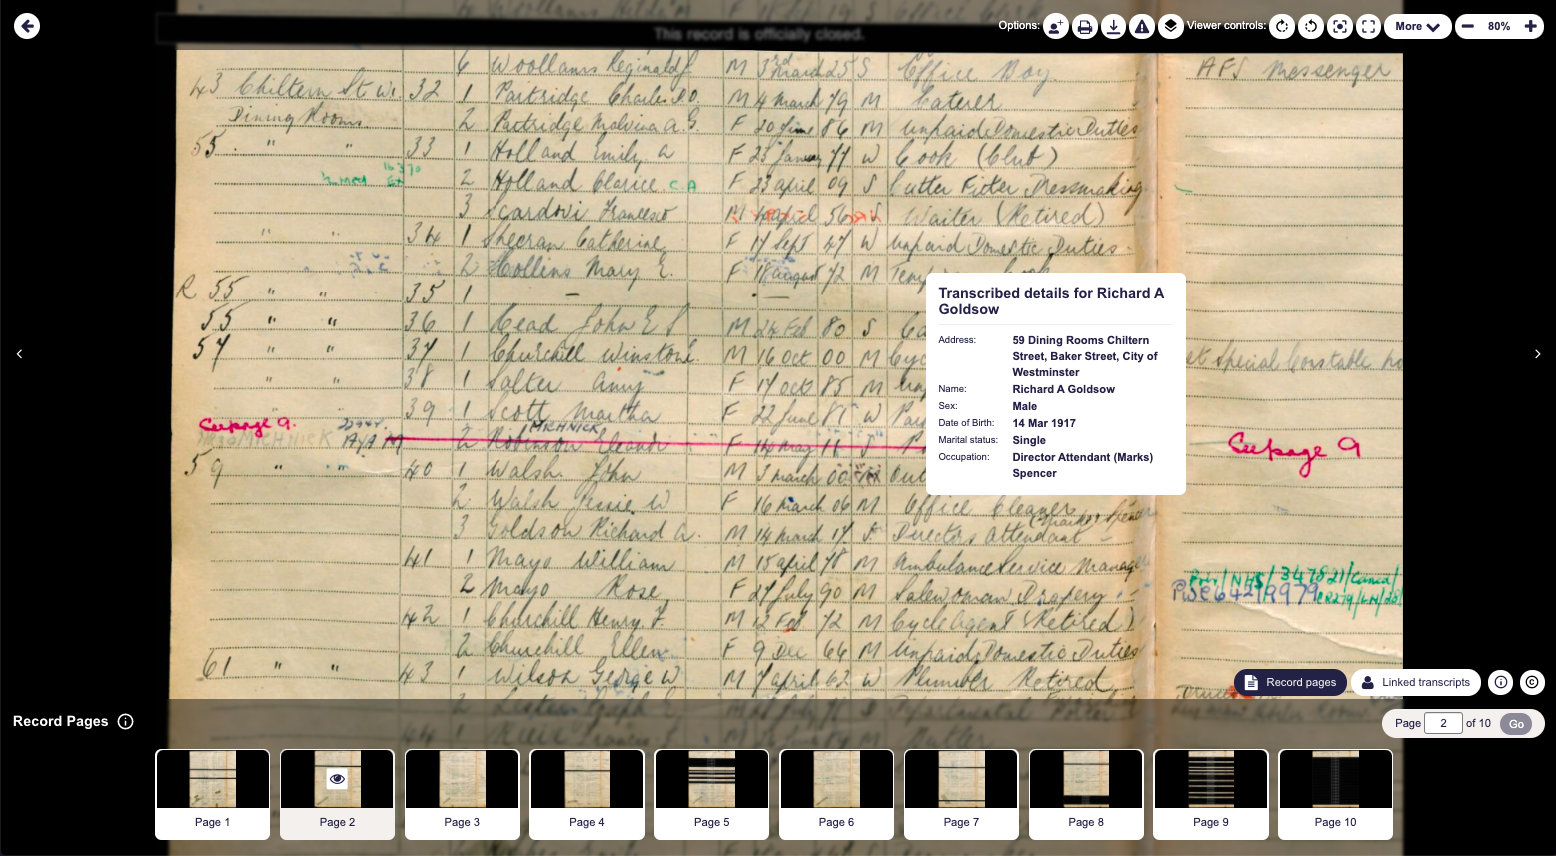 Options:
Viewer controls:
More
80%
This record is officially closed.
6 Woollams Reginald J. M 3rd March 25 S Office Boy AFS Messenger
43 Chiltern St W1. 32 1 Partridge Charles M 4 March 79 M Caterer
Dining Rooms. 2 Partridge Malvina A. G. F 20 June 86 M Unpaid Domestic Duties
55 " " 33 1 Holland Emily A F 23 January 77 W Cook (Club)
2 Holland Clarice C.A F 23 April 09 S Cutter Fitter Dressmaking
3 Scardovi Francesco M 4 April 56 Waiter (Retired)
" " 34 1 Sheeran Catherine F 17 Sept 47 W Unpaid Domestic Duties
2 Collins Mary E. F 18 August 72 M
R 55 " " 35 1 —
55 " " 36 1 Cead John E S M 24 Feb 80 S
57 " " 37 1 Churchill Winston M 16 Oct 00 M Cyc Special Constable
" " 38 1 Salter Amy F 17 Oct 85 M
" " 39 1 Scott Martha F 22 June 81 W
See page 9. MICHNICK
MICHNICK 2 Robinson Eleanor F 14 May See page 9
59 " 40 1 Walsh John M 3 March 00
2 Walsh Jessie W F 16 March 06 M Office Cleaner
3 Goldson Richard A. M 14 March 17 Directors Attendant
41 1 Mayo William M 15 April 78 M Ambulance Service Manager
2 Mayo Rose F 27 July 90 M Saleswoman Drapery
42 1 Churchill Henry F. M 12 Feb 72 M Cycle Agent (Retired)
2 Churchill Ellen F 9 Dec 66 M Unpaid Domestic Duties
61 " " 43 1 Wilson George W M 7 April 62 W Plumber Retired
Transcribed details for Richard A
Goldsow
Address: 59 Dining Rooms Chiltern
Street, Baker Street, City of
Westminster
Name: Richard A Goldsow
Sex: Male
Date of Birth: 14 Mar 1917
Marital status: Single
Occupation: Director Attendant (Marks)
Spencer
Record pages
Linked transcripts
Record Pages
Page 2 of 10 Go
Page 1
Page 2
Page 3
Page 4
Page 5
Page 6
Page 7
Page 8
Page 9
Page 10